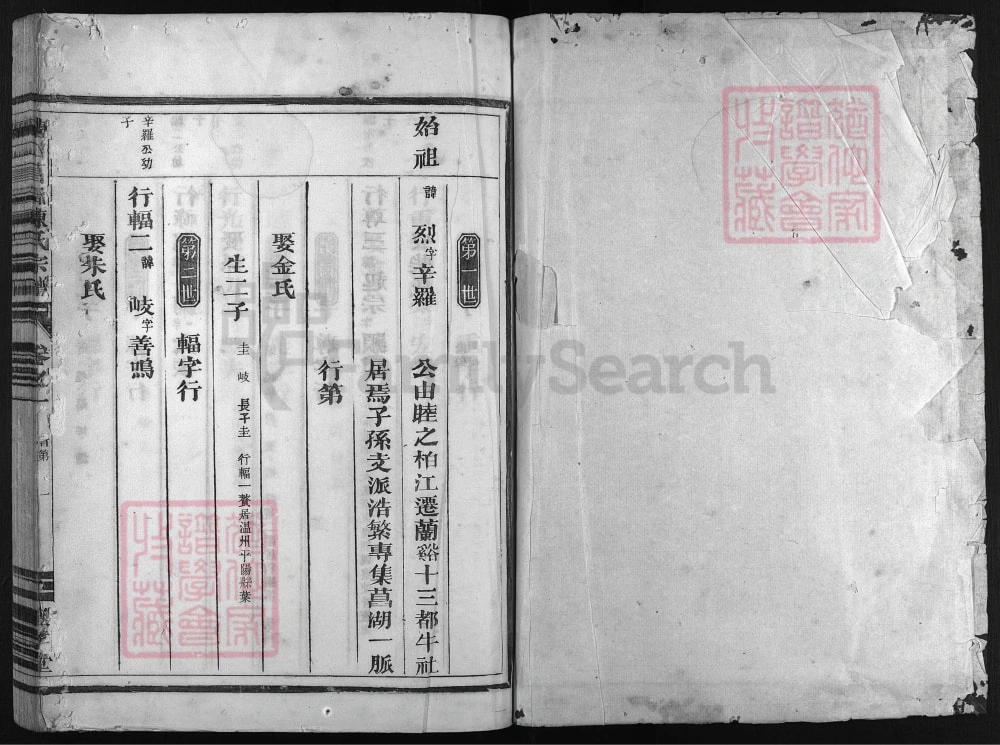 第一世
始祖
諱烈字辛羅
公由睦之柏江遷蘭谿十三都牛社
居焉子孫支派浩繁專集菖湖一脈
行第
娶金氏
生二子 圭 岐 長子圭 行輻一贅居温州平陽縣葉
第二世 輻字行
辛羅公幼子
行輻二諱岐字善鳴
娶朱氏
FamilySearch